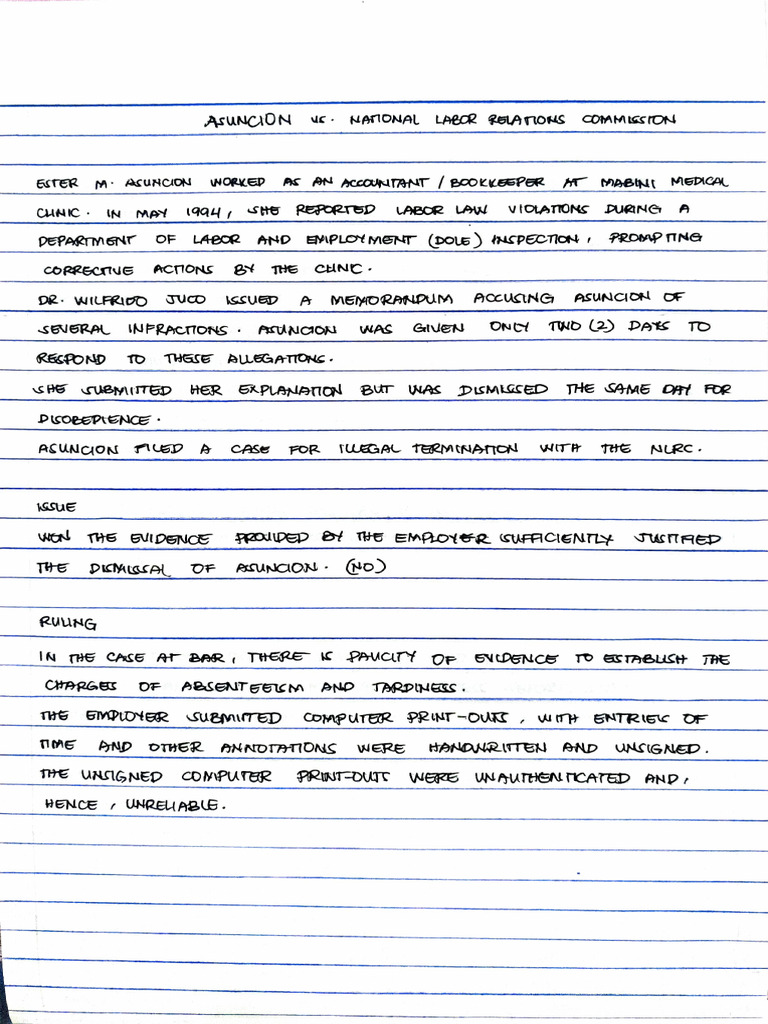 ASUNCION vs. NATIONAL LABOR RELATIONS COMMISSION
ESTER M. ASUNCION WORKED AS AN ACCOUNTANT / BOOKKEEPER AT MABINI MEDICAL
CLINIC. IN MAY 1994, SHE REPORTED LABOR LAW VIOLATIONS DURING A
DEPARTMENT OF LABOR AND EMPLOYMENT (DOLE) INSPECTION, PROMPTING
CORRECTIVE ACTIONS BY THE CLINIC.
DR. WILFRIDO JUCO ISSUED A MEMORANDUM ACCUSING ASUNCION OF
SEVERAL INFRACTIONS. ASUNCION WAS GIVEN ONLY TWO (2) DAYS TO
RESPOND TO THESE ALLEGATIONS.
SHE SUBMITTED HER EXPLANATION BUT WAS DISMISSED THE SAME DAY FOR
DISOBEDIENCE.
ASUNCION FILED A CASE FOR ILLEGAL TERMINATION WITH THE NLRC.
ISSUE
WON THE EVIDENCE PROVIDED BY THE EMPLOYER SUFFICIENTLY JUSTIFIED
THE DISMISSAL OF ASUNCION. (NO)
RULING
IN THE CASE AT BAR, THERE IS PAUCITY OF EVIDENCE TO ESTABLISH THE
CHARGES OF ABSENTEEISM AND TARDINESS.
THE EMPLOYER SUBMITTED COMPUTER PRINT-OUTS, WITH ENTRIES OF
TIME AND OTHER ANNOTATIONS WERE HANDWRITTEN AND UNSIGNED.
THE UNSIGNED COMPUTER PRINT-OUTS WERE UNAUTHENTICATED AND,
HENCE, UNRELIABLE.